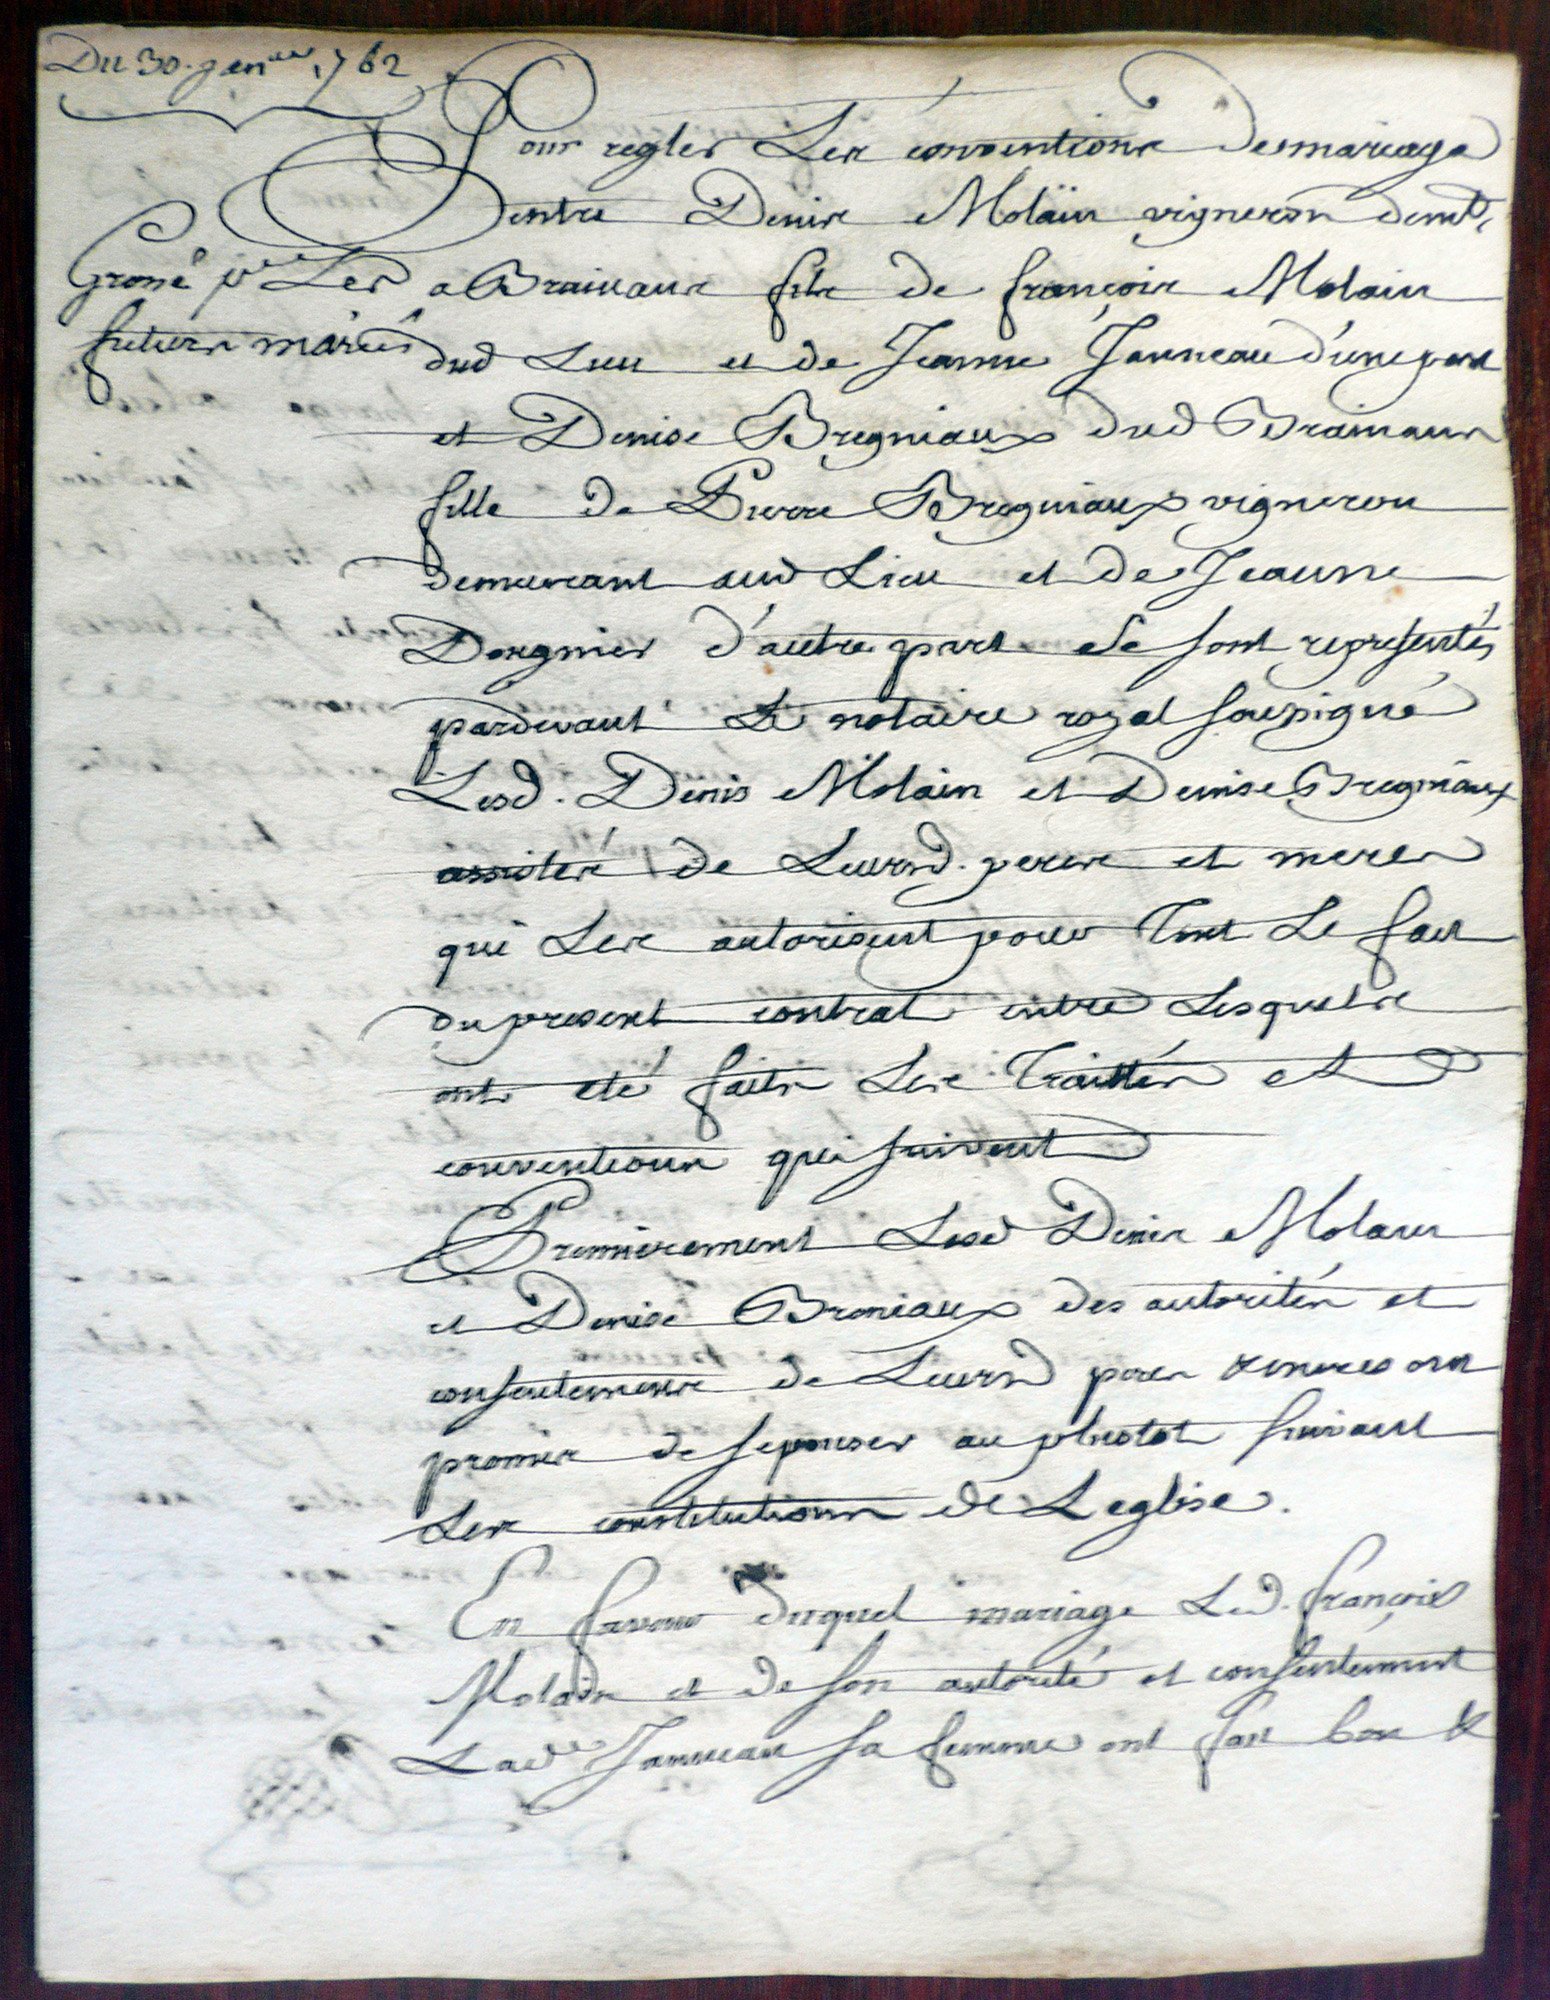 Du 30. genver 1762
Pour regler Les conventions demariage
Dentre Denis Molain vigneron demt
Grossé pr Les
futurs mariés
a Brainans fils de françois Molain
dud Lieu et de Jeanne Janneau d'une part
et Denise Bregniaux dud Brainans
fille de Pierre Bregniaux vigneron
demeurant aud Lieu et de Jeanne
d'autre part Se sont representés
pardevant Le notaire royal soussigné
Lesd. Denis Molain et Denise Bregniaux
assistés de Leursd. peres et meres
qui Les autorisent pour Tout Le fait
du present contrat entre Lesquels
ont eté faits Les Traittés et
conventions qui suivent
Premierement Lesd Denis Molain
et Denise Broniaux des autorités et
consentements de Leursd peres & meres ont
promis de s'epouser au plustot suivant
Les constitutions de L'eglise.
En faveur duquel mariage Led. françois
Molain et de son autorité et consentement
Lade Janneau sa femme ont fait bon &